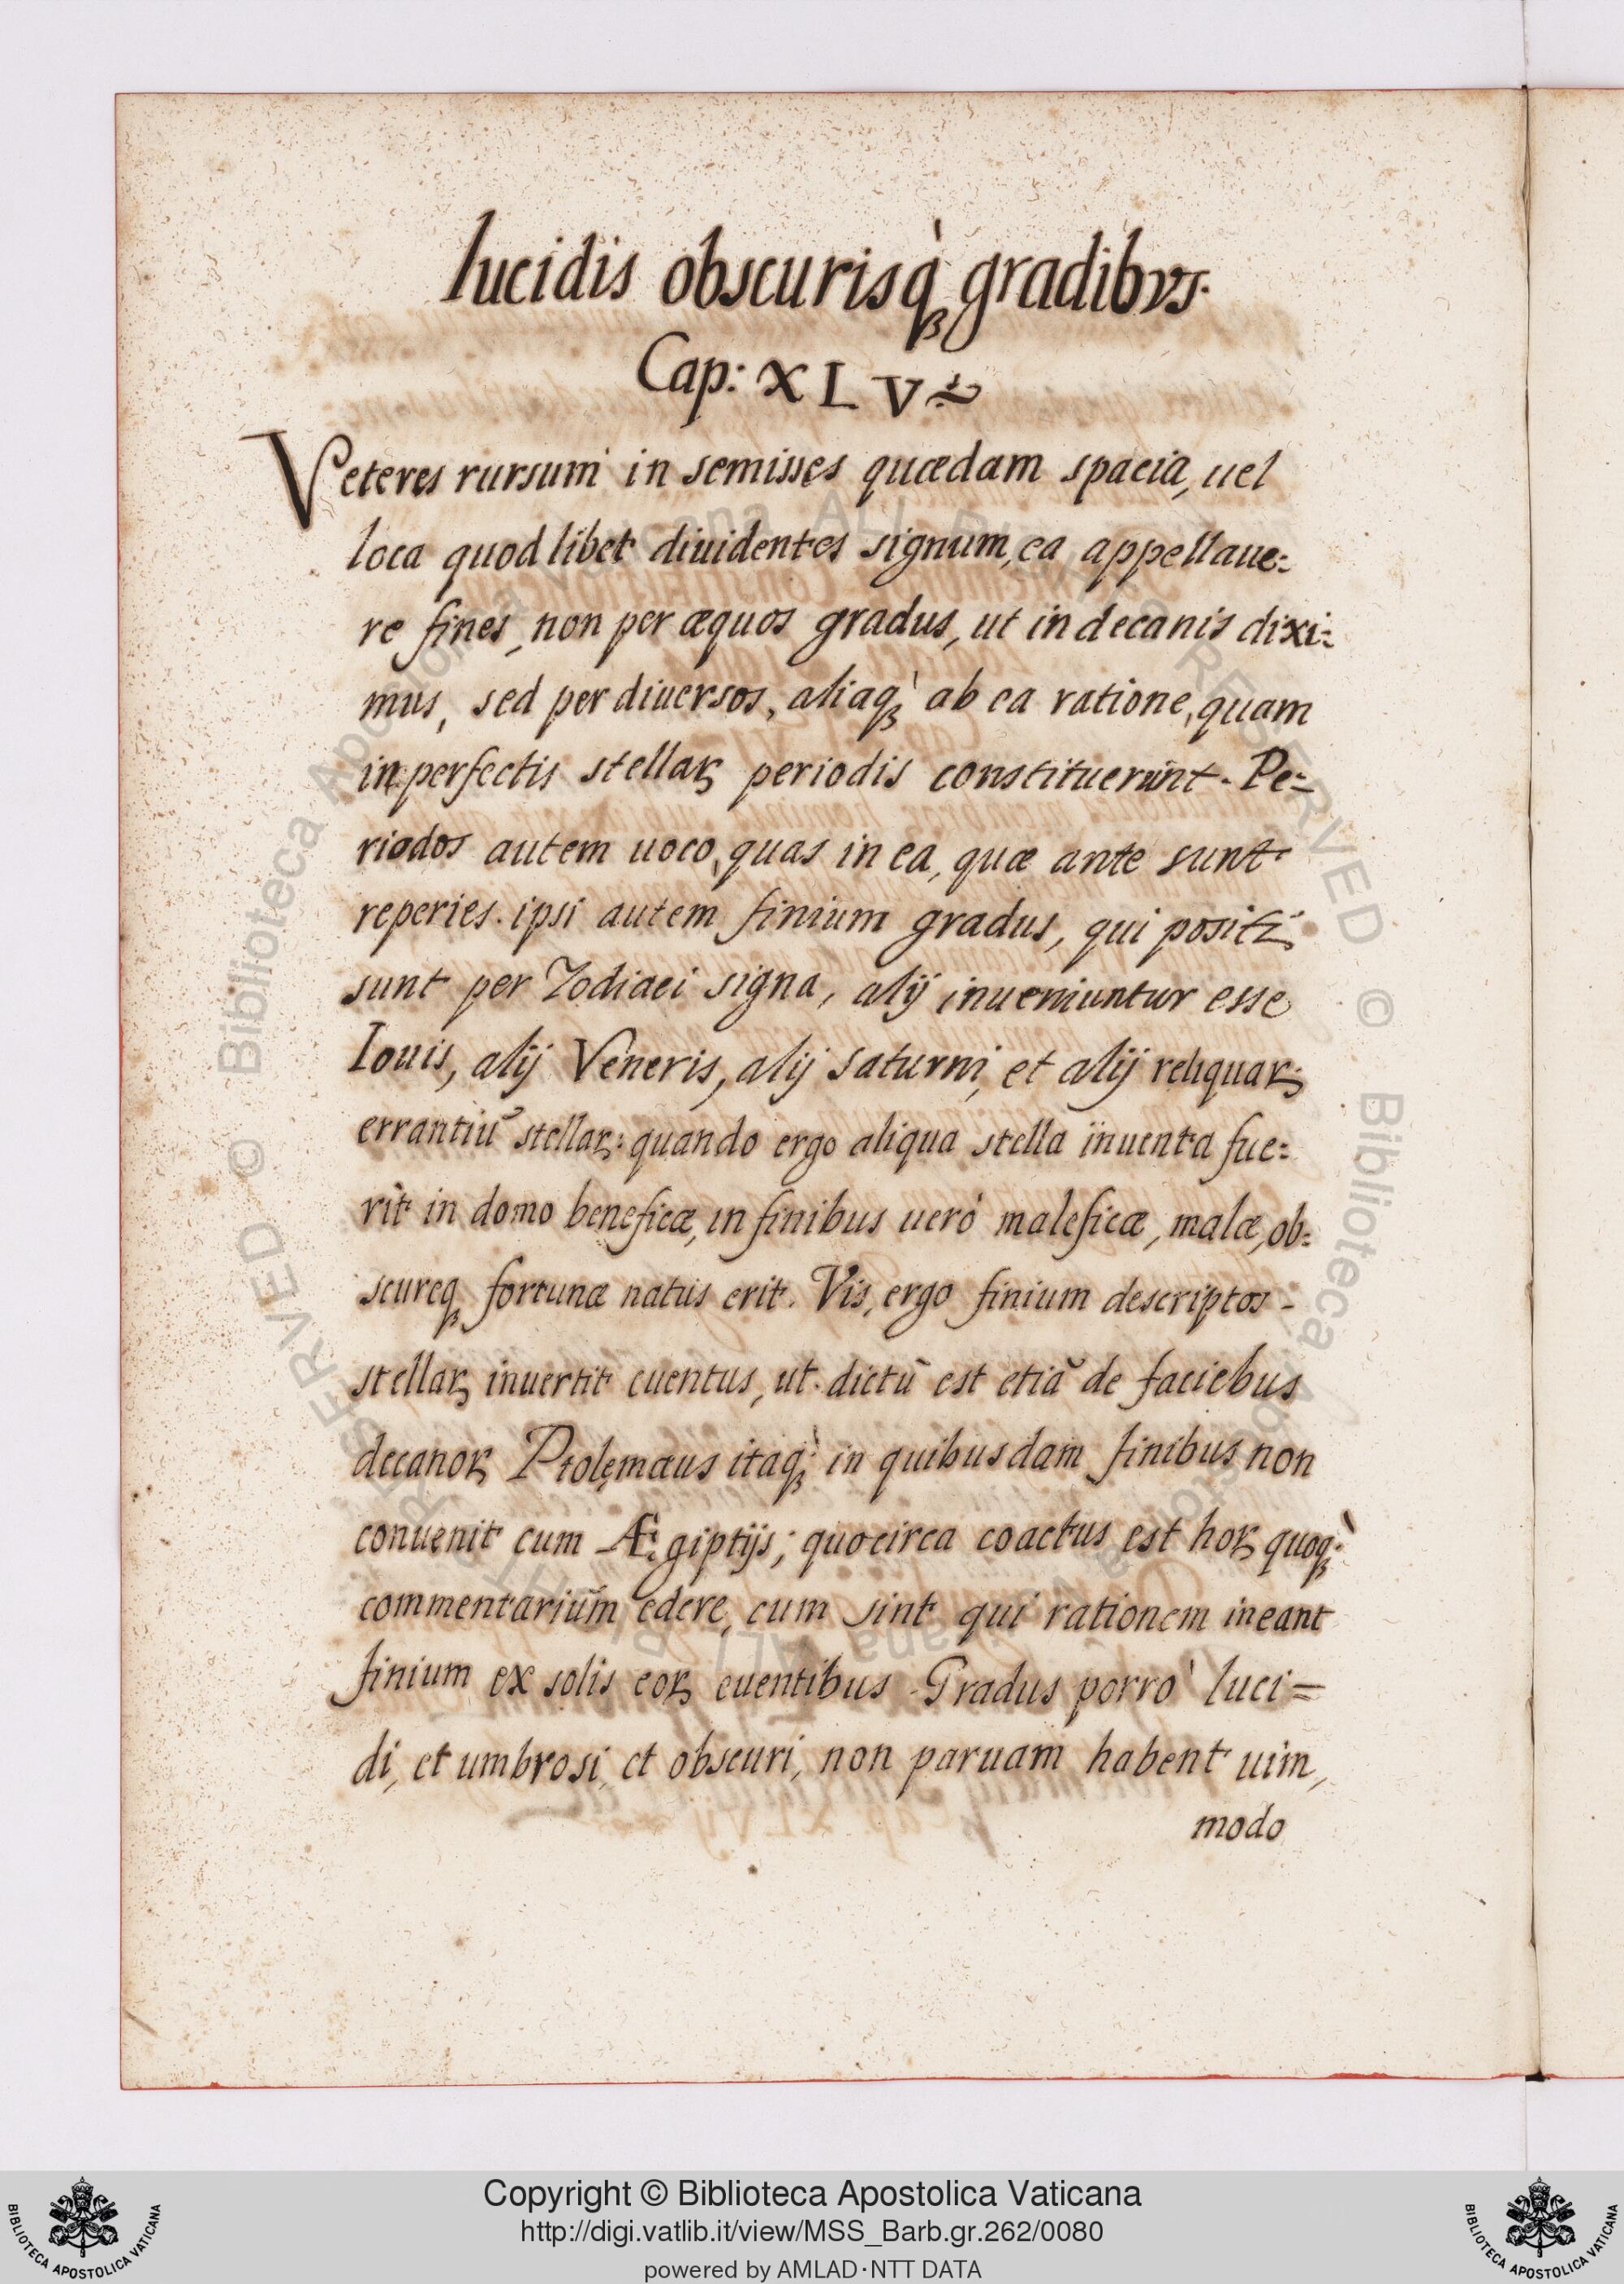 lucidis obscurisq̀ꝫ gradibus.
Cap: XLV
Veteres rursum in semisses quædam spacia, uel
loca quod libet diuidentes signum, ea appellaue=
re fines, non per æquos gradus, ut in decanis dixi=
mus, sed per diuersos, aliaq̀ꝫ ab ea ratione, quam
in perfectis stellaꝝ periodis constituerunt. Pe=
riodos autem uoco, quas in ea, quæ ante sunt
reperies. ipsi autem finium gradus, qui positi
sunt per Zodiaci signa, alij inueniuntur esse
Iouis, alij Veneris, alij Saturni, et alij reliquaꝝ
errantiũ stellaꝝ: quando ergo aliqua stella inuenta fue=
rit in domo beneficæ, in finibus uerò maleficæ, malæ, ob=
scureqꝫ fortunæ natus erit. Vis, ergo finium descriptos -
stellaꝝ inuertit euentus, ut dictũ est etiã de faciebus
decanoꝝ Ptolemæus itaq̀ꝫ in quibusdam finibus non
conuenit cum Ægiptijs; quocirca coactus est hoꝝ quoq̀ꝫ
commentarium edere, cum sint qui rationem ineant
finium ex solis eoꝝ euentibus. Gradus porrò luci=
di, et umbrosi, et obscuri, non paruam habent uim,
modo
Copyright © Biblioteca Apostolica Vaticana
http://digi.vatlib.it/view/MSS_Barb.gr.262/0080
powered by AMLAD·NTT DATA
BIBLIOTECA APOSTOLICA VATICANA
BIBLIOTECA APOSTOLICA VATICANA